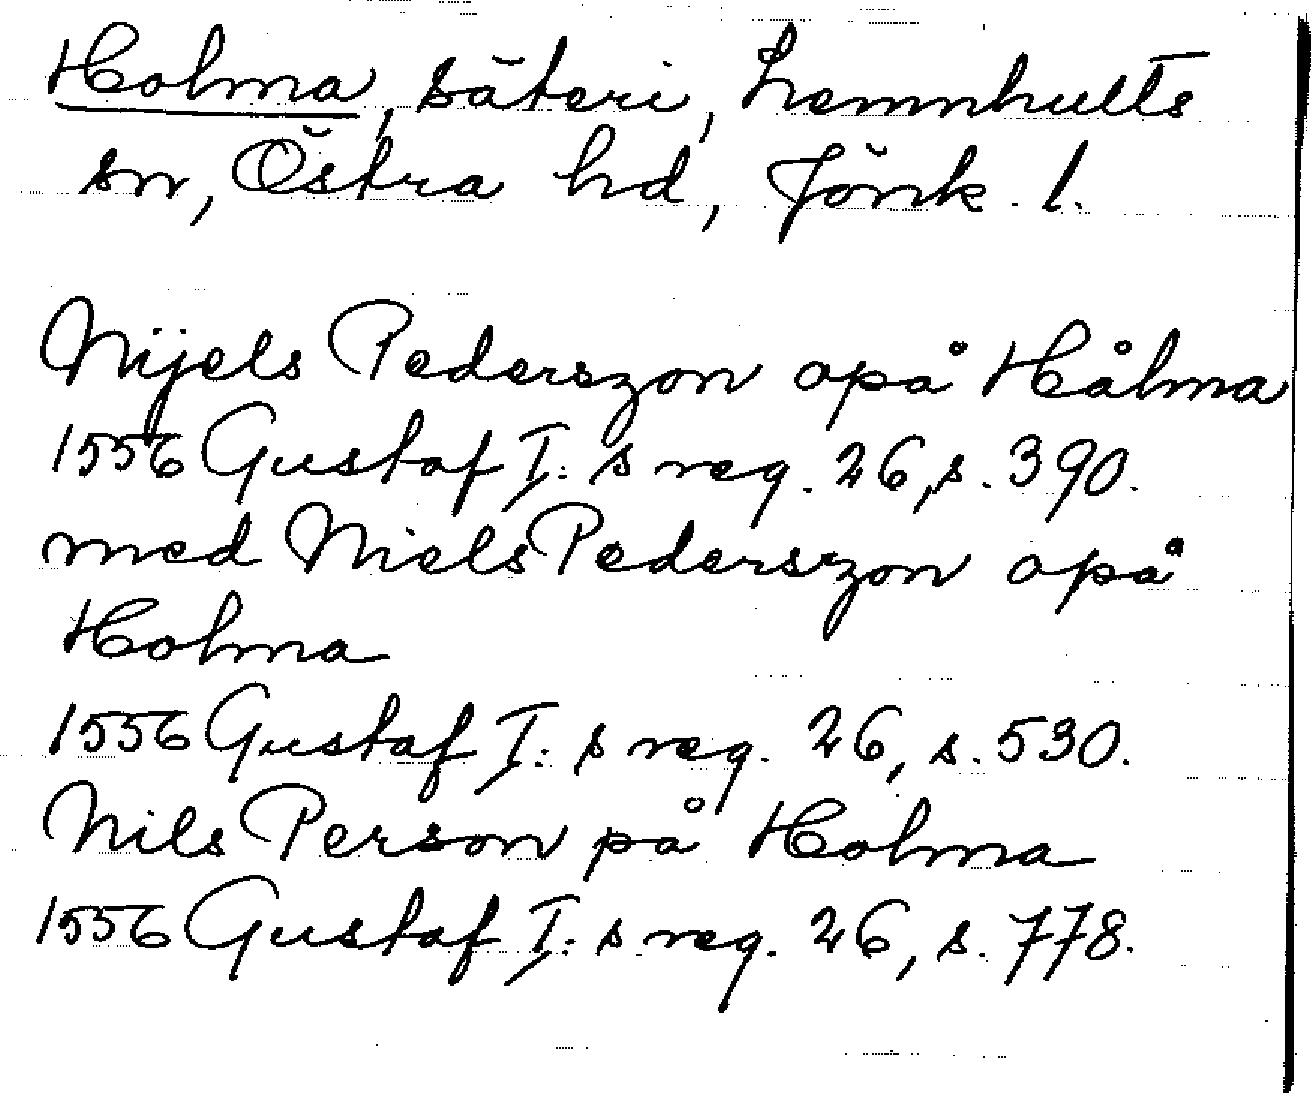 Holma, säteri, Lemnhults
sn, Östra hd, Jönk. l.
Nijels Pederszon opå Hålma
1556 Gustaf I:s reg. 26, s. 390.
med Niels Pederszon opå
Holma
1556 Gustaf I:s reg. 26, s. 530.
Nils Person på Holma
1556 Gustaf I:s reg. 26, s. 778.